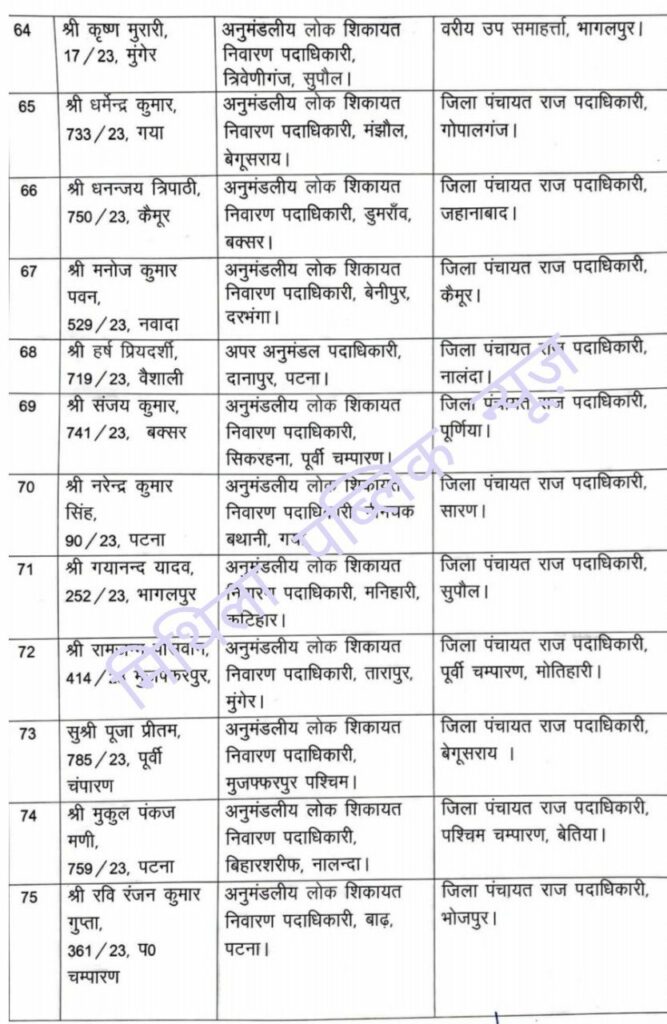 64
श्री कृष्ण मुरारी,
17/23, मुंगेर
अनुमंडलीय लोक शिकायत
निवारण पदाधिकारी,
त्रिवेणीगंज, सुपौल।
वरीय उप समाहर्त्ता, भागलपुर।
65
श्री धर्मेन्द्र कुमार,
733/23, गया
अनुमंडलीय लोक शिकायत
निवारण पदाधिकारी, मंझौल,
बेगूसराय।
जिला पंचायत राज पदाधिकारी,
गोपालगंज।
66
श्री धनन्जय त्रिपाठी,
750/23, कैमूर
अनुमंडलीय लोक शिकायत
निवारण पदाधिकारी, डुमराँव,
बक्सर।
जिला पंचायत राज पदाधिकारी,
जहानाबाद।
67
श्री मनोज कुमार
पवन,
529/23, नवादा
अनुमंडलीय लोक शिकायत
निवारण पदाधिकारी, बेनीपुर,
दरभंगा।
जिला पंचायत राज पदाधिकारी,
कैमूर।
68
श्री हर्ष प्रियदर्शी,
719/23, वैशाली
अपर अनुमंडल पदाधिकारी,
दानापुर, पटना।
जिला पंचायत राज पदाधिकारी,
नालंदा।
69
श्री संजय कुमार,
741/23, बक्सर
अनुमंडलीय लोक शिकायत
निवारण पदाधिकारी,
सिकरहना, पूर्वी चम्पारण।
जिला पंचायत राज पदाधिकारी,
पूर्णिया।
70
श्री नरेन्द्र कुमार
सिंह,
90/23, पटना
अनुमंडलीय लोक शिकायत
निवारण पदाधिकारी,
बथानी, गया
जिला पंचायत राज पदाधिकारी,
सारण।
71
श्री गयानन्द यादव,
252/23, भागलपुर
अनुमंडलीय लोक शिकायत
निवारण पदाधिकारी, मनिहारी,
कटिहार।
जिला पंचायत राज पदाधिकारी,
सुपौल।
72
श्री
414/23 मुजफ्फरपुर,
अनुमंडलीय लोक शिकायत
निवारण पदाधिकारी, तारापुर,
मुंगेर।
जिला पंचायत राज पदाधिकारी,
पूर्वी चम्पारण, मोतिहारी।
73
सुश्री पूजा प्रीतम,
785/23, पूर्वी
चंपारण
अनुमंडलीय लोक शिकायत
निवारण पदाधिकारी,
मुजफ्फरपुर पश्चिम।
जिला पंचायत राज पदाधिकारी,
बेगूसराय ।
74
श्री मुकुल पंकज
मणी,
759/23, पटना
अनुमंडलीय लोक शिकायत
निवारण पदाधिकारी,
बिहारशरीफ, नालन्दा।
जिला पंचायत राज पदाधिकारी,
पश्चिम चम्पारण, बेतिया।
75
श्री रवि रंजन कुमार
गुप्ता,
361/23, प0
चम्पारण
अनुमंडलीय लोक शिकायत
निवारण पदाधिकारी, बाढ़,
पटना।
जिला पंचायत राज पदाधिकारी,
भोजपुर।
मिथिला पब्लिक न्यूज़